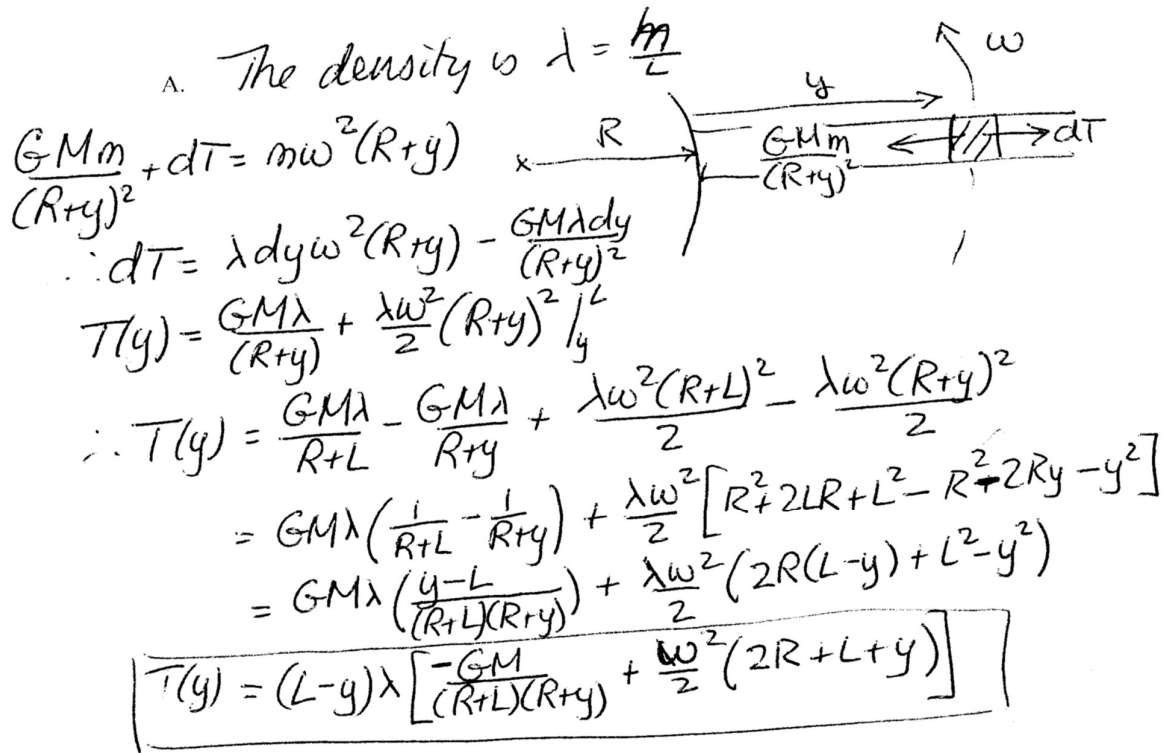 A. The density is λ = m/L
GMm/(R+y)² + dT = mω²(R+y)
∴ dT = λdyω²(R+y) - GMλdy/(R+y)²
T(y) = GMλ/(R+y) + λω²/2 (R+y)² |_y^L
∴ T(y) = GMλ/R+L - GMλ/R+y + λω²(R+L)²/2 - λω²(R+y)²/2
= GMλ(1/R+L - 1/R+y) + λω²/2 [R²+2LR+L²-R²-2Ry-y²]
= GMλ(y-L/(R+L)(R+y)) + λω²/2 (2R(L-y)+L²-y²)
T(y) = (L-y)λ[-GM/(R+L)(R+y) + ω²/2 (2R+L+y)]
ω
y
R
x
GMm/(R+y)²
dT